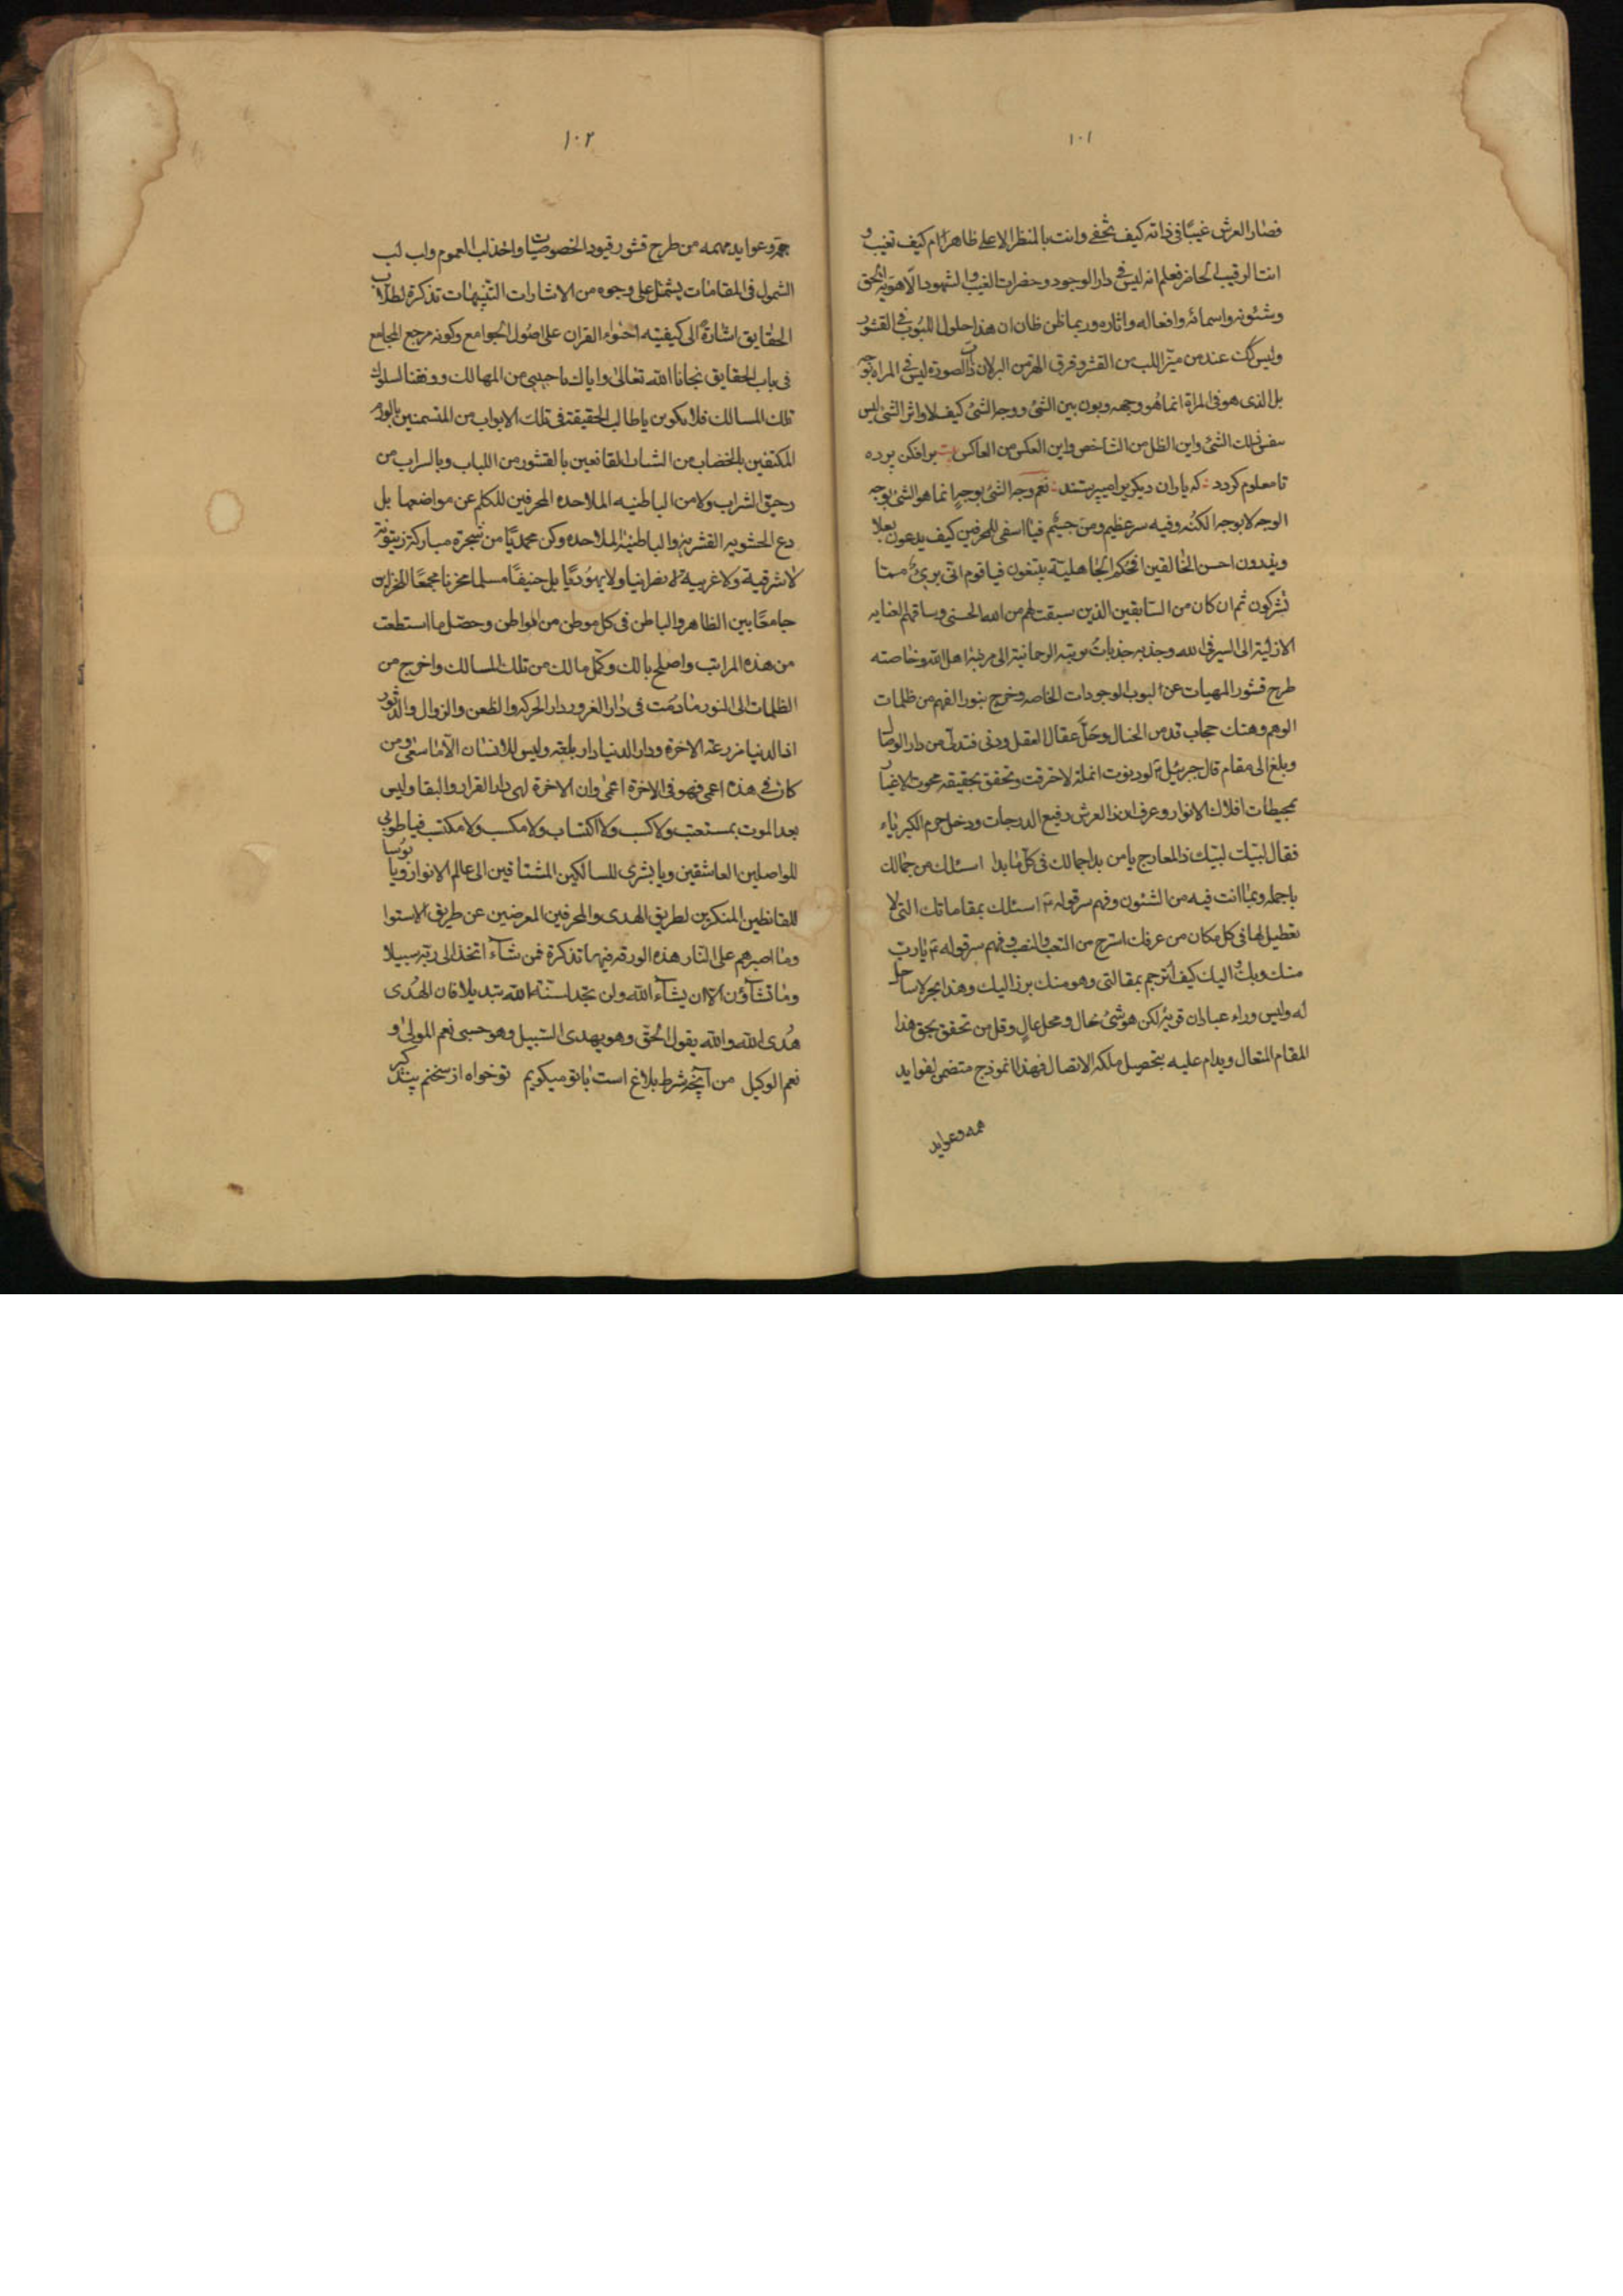 ١٠١
فصار العرش غيبًا فى ذاته كيف تخفى وانت بالمنظر الاعلى ظاهرًا ام كيف تغيب و
انت الرقيب الحاضر فعلم انه ليس فى دار الوجود وحضرات الغيب والشهود الّا هويّه الحق
وشئونه واسمائه وافعاله واثاره وربما ظن ظان ان هذا حلول اللبوب فى القشور
وليس كك عند من ميّز اللب من القشر وفرق الهرّ من البر لان ذات الصورة ليس فى المراة بوجه
بل الذى هو فى المراة انما هو وجهه وبون بين الشئ ووجه الشئ كيف لا واثر الشئ ليس
نفس ذلك الشئ واين الظل من الشاخص واين العكس من العاكس بيت برافكن پرده
تا معلوم كردد كه ياران ديكريرا ميپرستند نعم وجه الشئ بوجهٍ انما هو الشئ بوجه
الوجه لا بوجه الكنه وفيه سر عظيم ومن جسيم فيا اسفى للمحرفين كيف يدعون بعلا
ويذرون احسن الخالقين افحكم الجاهليّة يبتغون فيا قوم انى برئ مما
تشركون ثم ان كان من السابقين الذين سبقت لهم من الله الحسنى وساقهم العنايه
الازليّة الى السير فى الله وجذبه جذبات ربّه الرحمانية الى مرتبة اهل الله وخاصته
طرح قشور المهيات عن لبوب الوجودات الخاصه وخرج بنور الفهم من ظلمات
الوهم وهتك حجاب قدس الخيال وحَلّ عقال العقل ودنى فتدلى من دار الوصال
وبلغ الى مقام قال جبرئيل لو دنوت انملة لاحترقت وتحقق بحقيقه محوت الاغيار
بمحيطات افلاك الانوار وعرف ان ذا العرش رفيع الدرجات ودخل حرم الكبرياء
فقال لبّيك لبّيك ذا المعارج يا من بدا جمالك فى كل ما بدا اسئلك من جمالك
باجمله وبما انت فيه من الشئون وفهم سر قوله اسئلك بمقاماتك التى لا
تعطيل لها فى كل مكان من عرفك استرح من التعب والنصب وفهم سر قوله يا رب
منك وبك واليك كيف اترجم بمقالتى وهو منك برز اليك وهذا بحر لا ساحل
له وليس وراء عبادان قرية لكن هو شئ خال ومحل عالٍ وقل من تحقق بحق هذا
المقام المتعال ويدام عليه بتحصيل ملكة الاتصال فهذا انموذج متضمن لفوايد
وعوايد
١٠٢
جمة وعوايد مهمه من طرح قشور قيود الخصوصيات واخذ لباب العموم ولب لب
الشمول فى المقامات يشتمل على وجوه من الاشارات التنبيهات تذكرة لطلاب
الحقايق اشارةً الى كيفيّه احتواء القران على اصول الجوامع وكونه مرجع المجامع
فى باب الحقايق نجانا الله تعالى واياك يا حبيبى من المهالك ووفقنا لسلوك
تلك المسالك فلا تكونن يا طالب الحقيقة فى تلك الابواب من المتسمنين بالورم
المكتفين بالخضاب من الشباب القانعين بالقشور من اللباب وبالسراب من
رحيق الشراب ولا من الباطنيه الملاحده المحرفين للكلم عن مواضعها بل
دع الحشويه القشريه والباطنيّه الملاحده وكن محمديًّا من شجرة مباركة زيتونة
لا شرقية ولا غربية لا نصرانيا ولا يهوديًّا بل حنيفًا مسلما مخزنا مجمعًا للخزاين
جامعًا بين الظاهر والباطن فى كل موطن من المواطن وحصّل ما استطعت
من هذه المراتب واصلح بالك وكمّل مالك من تلك المسالك واخرج من
الظلمات الى النور ما دمت فى دار الغرور دار الحركه والظعن والزوال والدثور
اذ الدنيا مزرعة الاخرة ودار الدنيا دار بلغه وليس للانسان الّا ما سعى ومن
كان فى هذه اعمى فهو فى الاخرة اعمى وان الاخرة لهى دار القرار والبقا وليس
بعد الموت بمستعتب ولا كسب ولا اكتساب ولا مكسب ولا مكتب فيا طوبى
للواصلين العاشقين ويا بشرى للسالكين المشتاقين الى عالم الانوار ويا بؤسا
للقانطين المنكرين لطريق الهدى والمحرفين المعرضين عن طريق الاستوا
وما اصبرهم على النار هذه الورقه فيها تذكرة فمن شآء اتخذ الى ربّه سبيلا
وما تشآؤن الا ان يشآء الله ولن تجد لسنّة الله تبديلا فان الهُدى
هُدى الله والله يقول الحقّ وهو يهدى السّبيل وهو حسبى نعم المولى و
نعم الوكيل من آنچه شرط بلاغ است با تو ميكويم تو خواه از سخنم پند كير